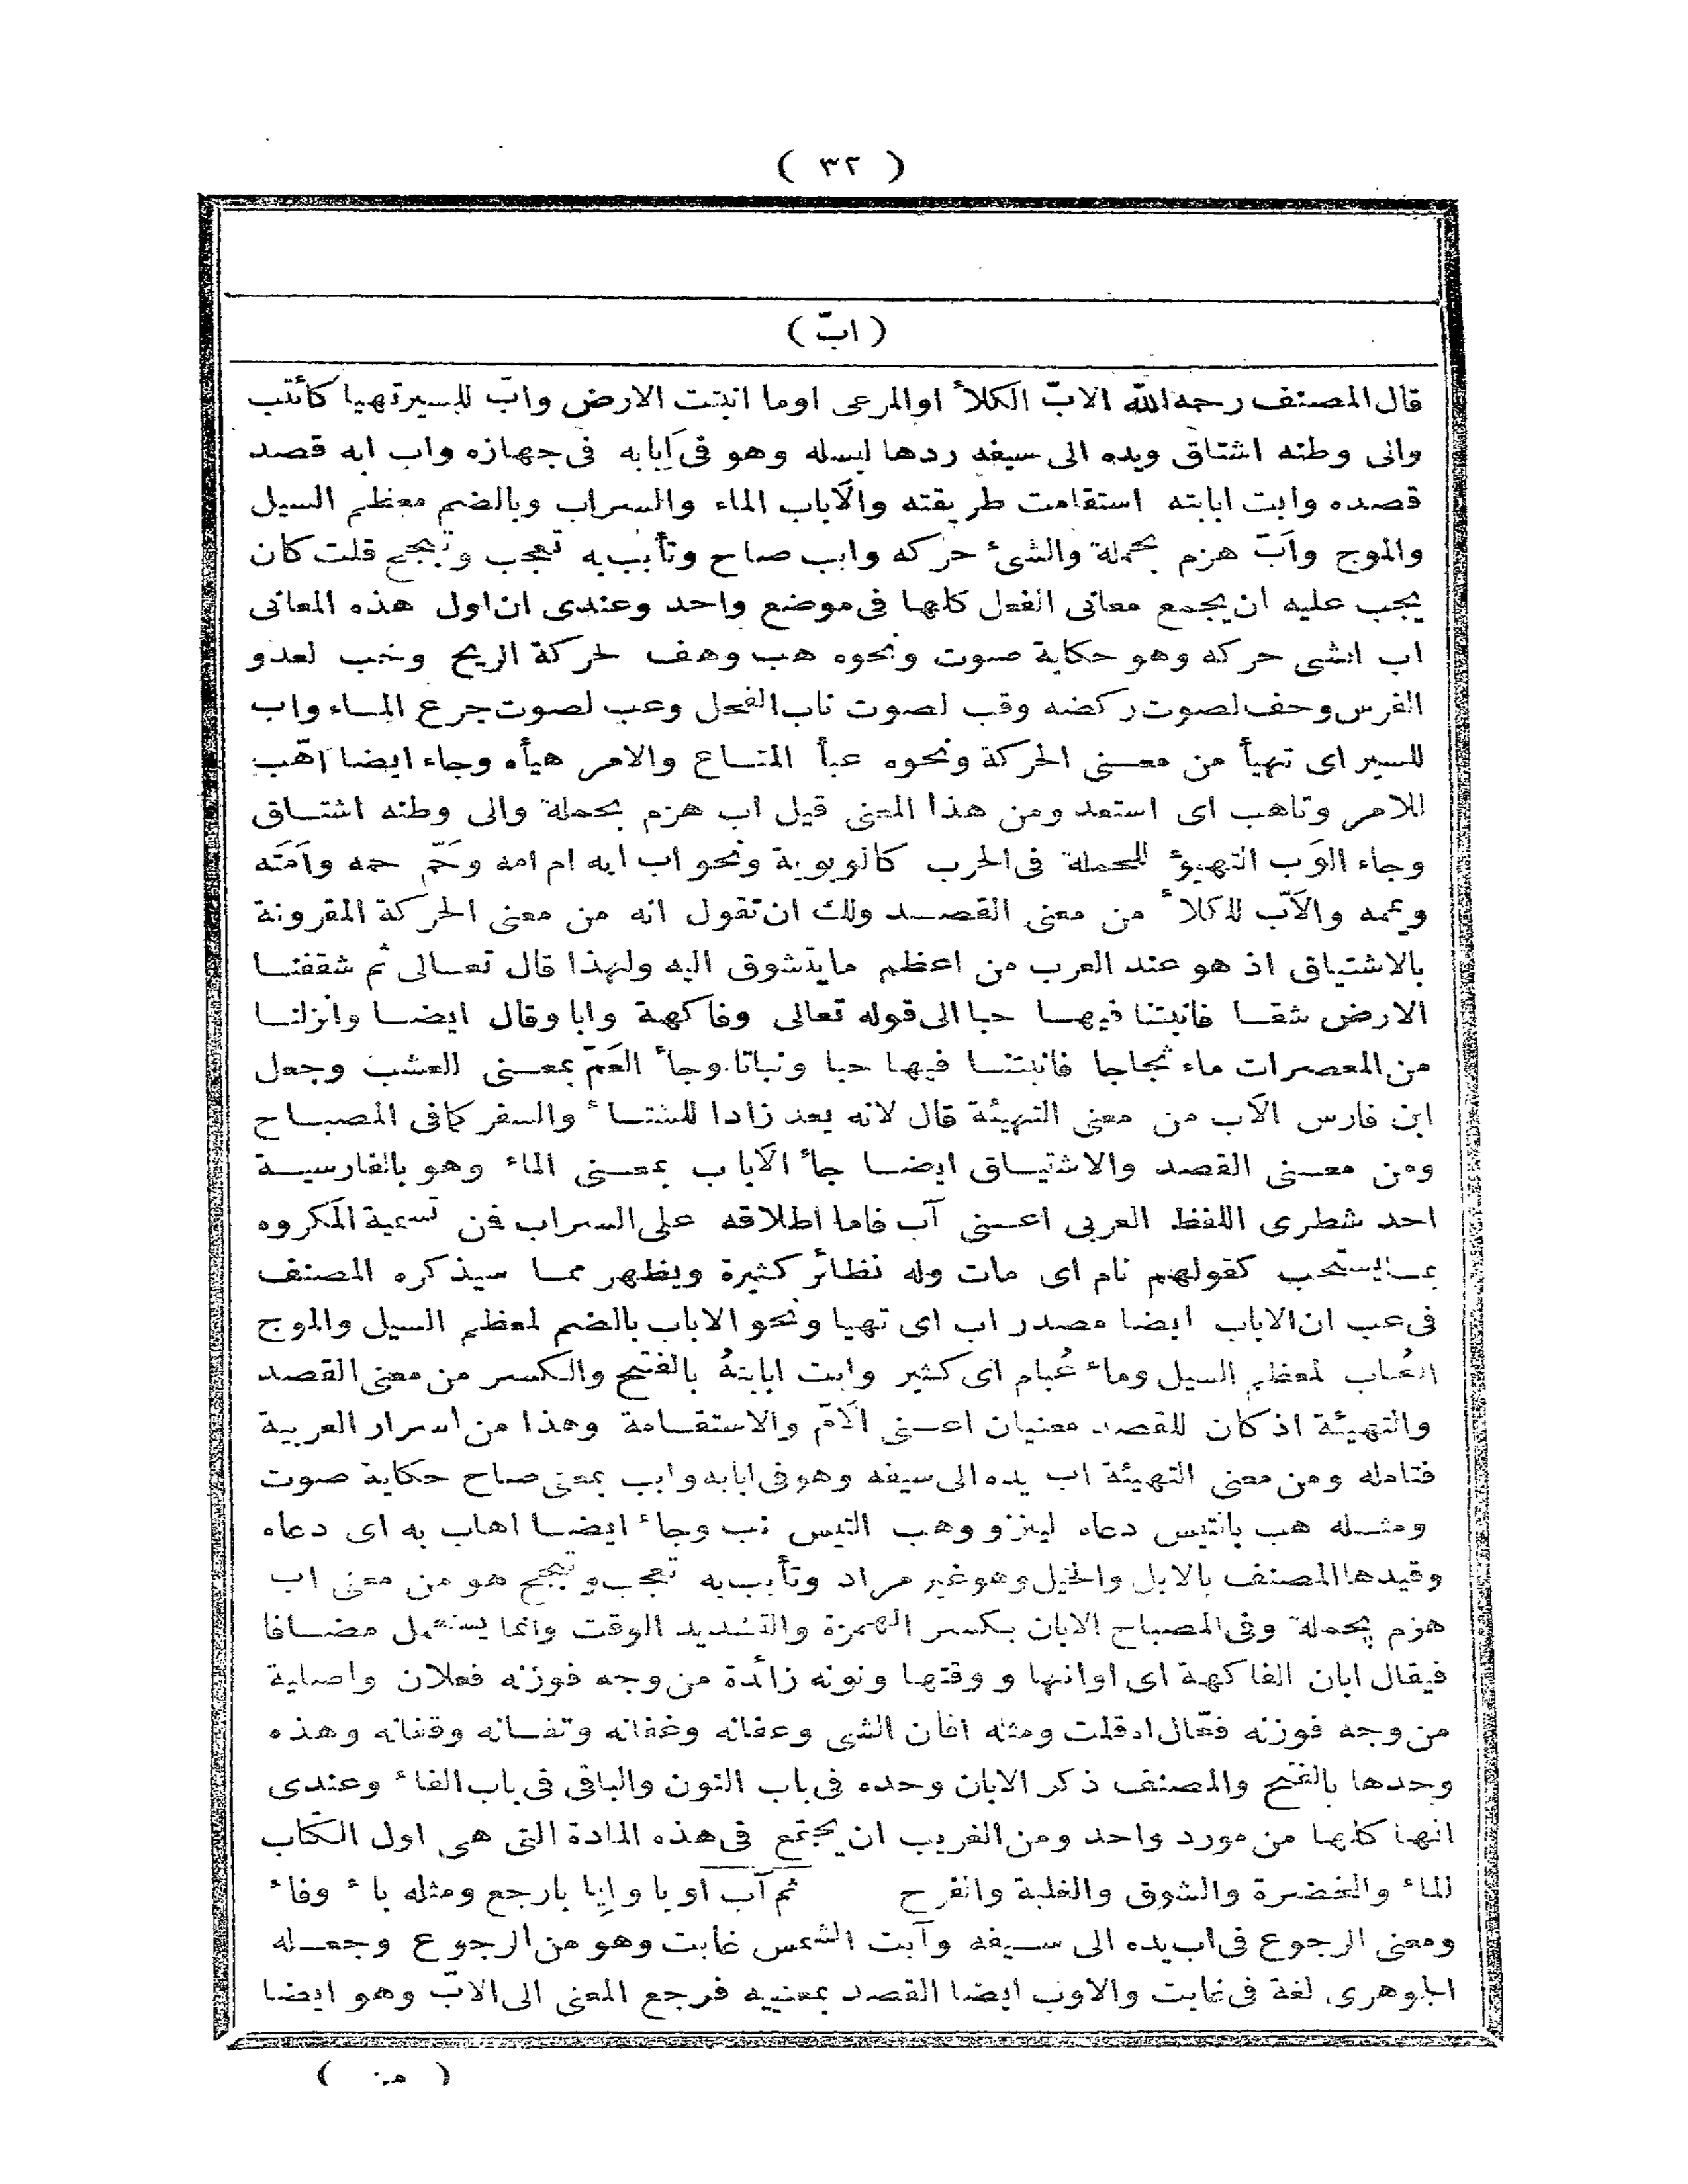 ( ٣٢ )
( ابّ )
قال المصنف رحمه الله الابّ الكلأ اوالمرعى اوما انبتت الارض وابّ للسيرتهيا كأئتب
والى وطنه اشتاق ويده الى سيفه ردها ليسله وهو فى اَبابه فى جهازه واب ابه قصد
قصده وابت ابابته استقامت طريقته والاَباب الماء والسراب وبالضم معظم السيل
والموج واَبّ هزم بحملة والشئ حركه وابب صاح وتأبب به تعجب وتبجح قلت كان
يجب عليه ان يجمع معانى الفعل كلها فى موضع واحد وعندى ان اول هذه المعانى
اب الشى حركه وهو حكاية صوت ونحوه هب وهف لحركة الريح وخب لعدو
الفرس وحف لصوت ركضه وقب لصوت ناب الفحل وعب لصوت جرع الماء واب
للسير اى تهيأ من معنى الحركة ونحوه عبأ المتاع والامر هيأه وجاء ايضا اَهّب
للامر وتاهب اى استعد ومن هذا المعنى قيل اب هزم بحملة والى وطنه اشتاق
وجاء الوَب التهيؤ للحملة فى الحرب كالوبوبة ونحو اب ابه ام امه وحَمّ حمه واَمَته
وعمه والاَبّ للكلأ من معنى القصد ولك ان تقول انه من معنى الحركة المقرونة
بالاشتياق اذ هو عند العرب من اعظم مايتشوق اليه ولهذا قال تعالى ثم شققنا
الارض شقا فانبتنا فيها حبا الى قوله تعالى وفاكهة وابا وقال ايضا وانزلنا
من المعصرات ماء ثجاجا فانبتنا فيها حبا ونباتا وجأ العَمّ بمعنى العشب وجعل
ابن فارس الاَب من معنى التهيئة قال لانه يعد زادا للشتاء والسفر كمافى المصباح
ومن معنى القصد والاشتياق ايضا جأ الاَباب بمعنى الماء وهو بالفارسية
احد شطرى اللفظ العربى اعنى آب فاما اطلاقه على السراب فمن تسمية المكروه
بمايستحب كقولهم نام اى مات وله نظائر كثيرة ويظهر مما سيذكره المصنف
فى عب ان الاباب ايضا مصدر اب اى تهيا ونحو الاباب بالضم لمعظم السيل والموج
العُباب لمعظم السيل وماء عُبام اى كثير وابت ابابتهُ بالفتح والكسر من معنى القصد
والتهيئة اذ كان للقصد معنيان اعنى الاَمّ والاستقامة وهذا من اسرار العربية
فتامله ومن معنى التهيئة اب يده الى سيفه وهوفى ابابه وابب بمعنى صاح حكاية صوت
ومثله هب بالتيس دعاه لينزو وهب التيس نب وجاء ايضا اهاب به اى دعاه
وقيدها المصنف بالابل والخيل وهوغير مراد وتأبب به تعجب وتبجح هو من معنى اب
هزم بحملة وفى المصباح الابان بكسر الهمزة والتشديد الوقت وانما يستعمل مضافا
فيقال ابان الفاكهة اى اوانها ووقتها ونونه زائدة من وجه فوزنه فعلان واصلية
من وجه فوزنه فعّال اه قلت ومثله افان الشى وعفانه وغفانه وتفانه وقفانه وهذه
وحدها بالفتح والمصنف ذكر الابان وحده فى باب النون والباقى فى باب الفاء وعندى
انها كلها من مورد واحد ومن الغريب ان يجتمع فى هذه المادة التى هى اول الكتّاب
للماء والخضرة والشوق والغلبة والفرح ثم آب اَوبا وايابا رجع ومثله باء وفاء
ومعنى الرجوع فى اب يده الى سيفه وآبت الشمس غابت وهو من الرجوع وجعله
الجوهرى لغة فى غابت والاوب ايضا القصد بمعنييه فرجع المعنى الى الابّ وهو ايضا